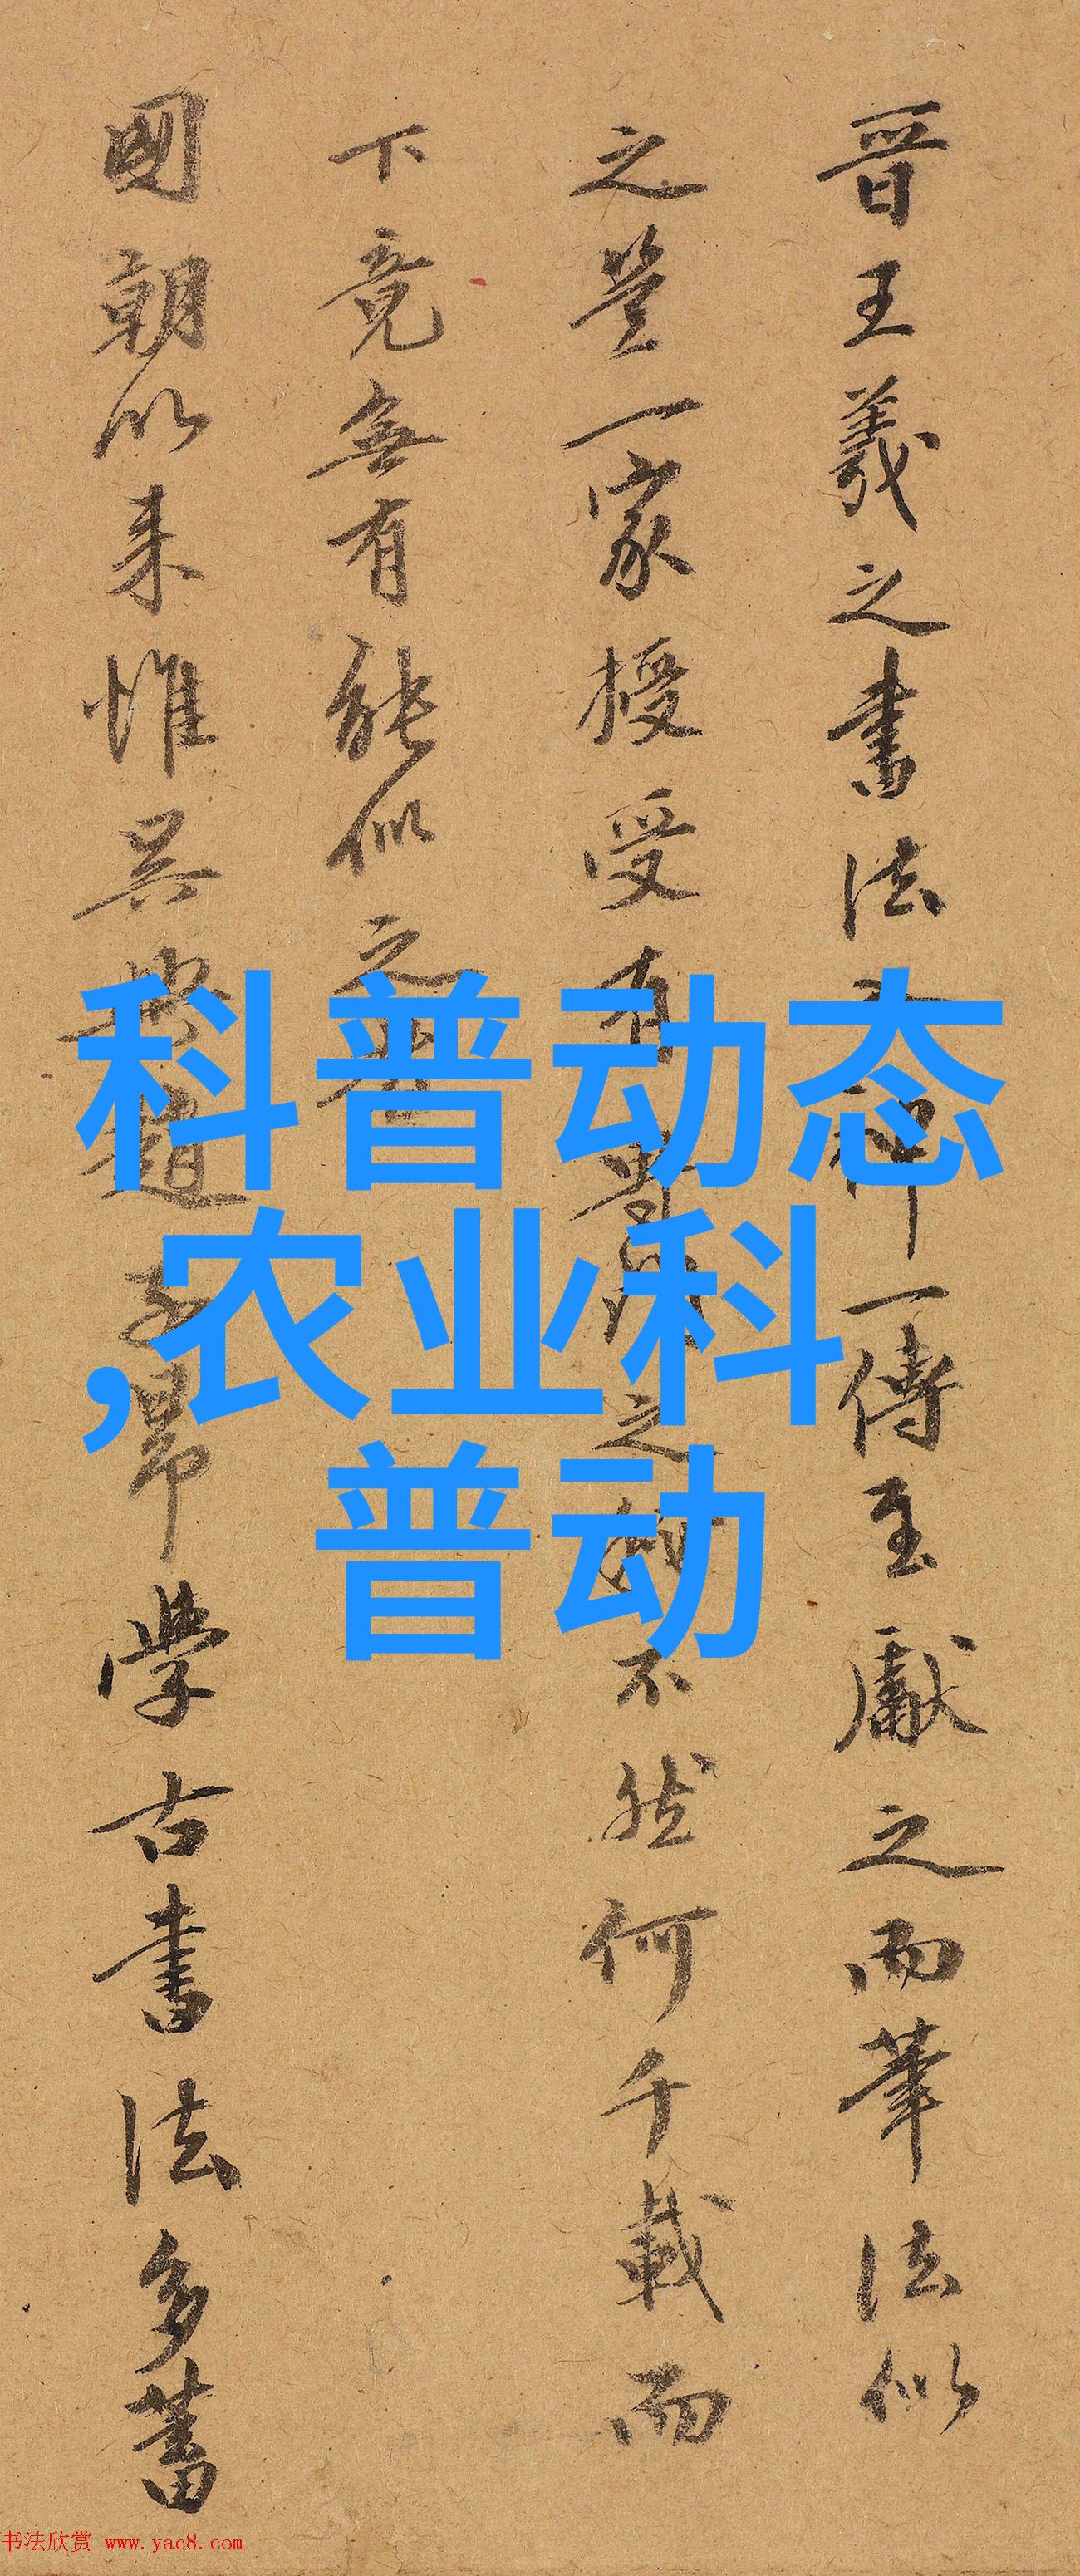 晋王羲之書法一傳至獻之而筆法似
之豈一家授受有之不然何千載而
下竟無有能似之
國朝以来惟吴興趙子昂學古書法多蓄
科普动态
,农业科
普动
书法欣赏 www.yac8.com